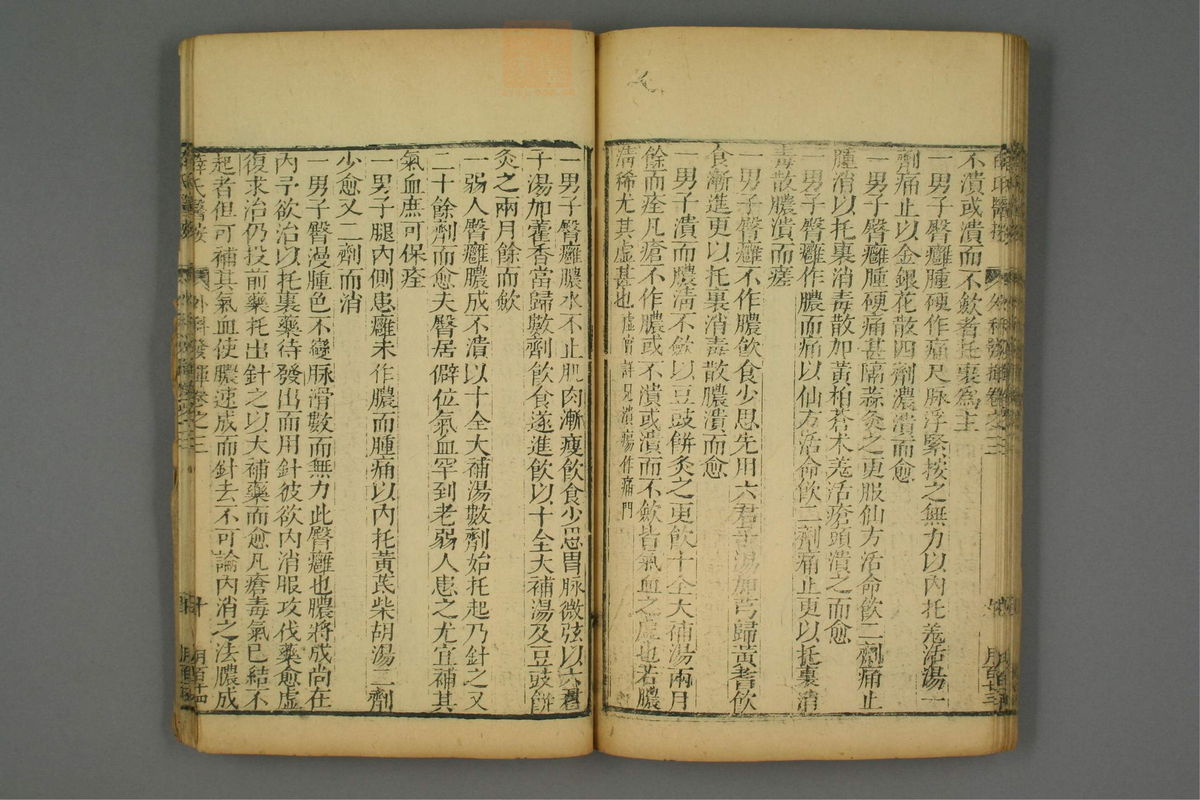 不潰或潰而不斂者托裏爲主
一男子臀癰腫硬作痛尺脉浮緊按之無力以內托羗活湯一
劑痛止以金銀花散四劑濃潰而愈
一男子臀癰腫硬痛甚隔蒜灸之更服仙方活命飲二劑痛止
腫消以托裏消毒散加黃柏蒼术羗活瘡頭潰之而愈
一男子臀癰作膿而痛以仙方活命飲二劑痛止更以托裏消
毒散膿潰而瘥
一男子臀癰不作膿飲食少思先用六君子湯加芎歸黃耆飲
食漸進更以托裏消毒散膿潰而愈
一男子潰而膿淸不斂以豆豉餅灸之更飲十全大補湯兩月
餘而痊凡瘡不作膿或不潰或潰而不斂皆氣血之虛也若膿
淸稀尤其虛甚也 虛甚詳見潰瘍作痛門
一男子臀癰膿水不止肌肉漸瘦飲食少思胃脉微弦以六君
子湯加藿香當歸數劑飲食遂進飲以十全大補湯及豆豉餅
灸之兩月餘而斂
一弱人臀癰膿成不潰以十全大補湯數劑始托起乃針之又
二十餘劑而愈夫臀居僻位氣血罕到老弱人患之尤宜補其
氣血庶可保痊
一男子腿內側患癰未作膿而腫痛以內托黃芪柴胡湯二劑
少愈又二劑而消
一男子臀漫腫色不變脉滑數而無力此臀癰也膿將成尚在
內予欲治以托裏藥待發出而用針彼欲內消服攻伐藥愈虛
復求治仍投前藥托出針之以大補藥而愈凡瘡毒氣已結不
起者但可補其氣血使膿速成而針去不可論內消之法膿成
薛氏醫按 外科發揮卷之三 十 月百十四